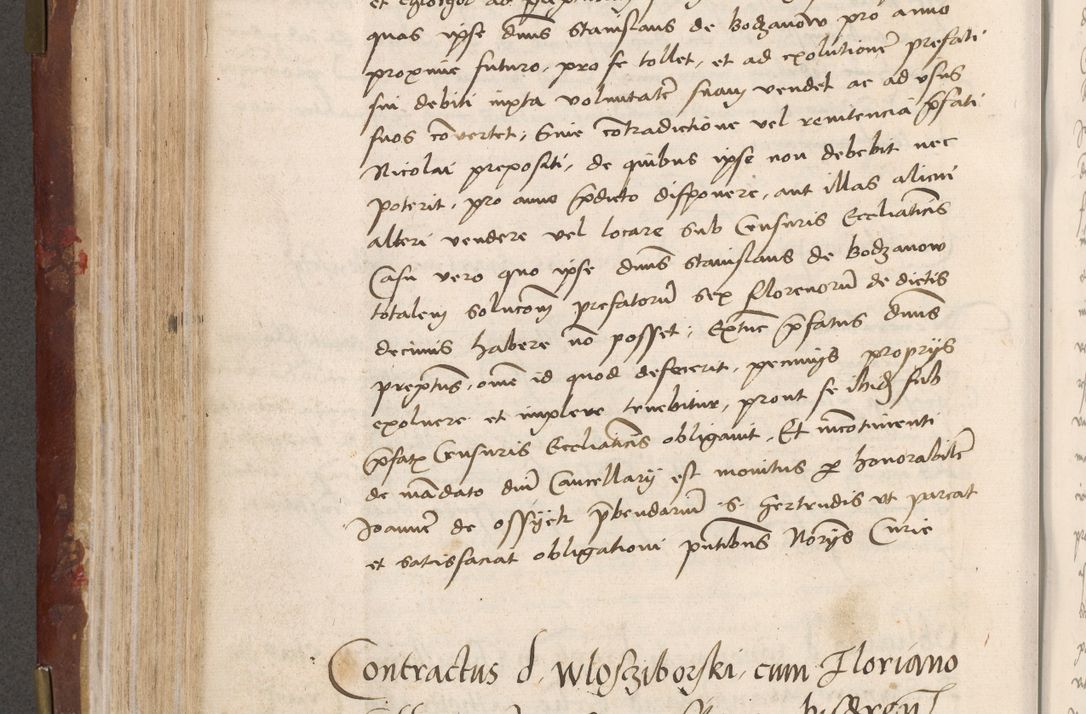 quas ipse dnus Stanislaus de Bodzanow pro anno
proxime futuro, pro se tollet, et ad exolutionem prefati
sui debiti iuxta voluntatem suam vendet ac ad usus
suos convertet, Sine contradictione vel renitencia pfati
Nicolai prepositi, de quibus ipse non debebit nec
poterit, pro anno pdicto disponere, aut illas alicui
alteri vendere vel locare sub Censuris Eccliasticis
Casu vero quo ipse dnus Stanislaus de Bodzanow
totalem solucom prefatorum sex florenorum de dictis
decimis habere non posset, Extunc pfatus dnus
prepttus, omne id quod defecerit, pecuniis propriis
exoluere et implere tenebitur, prout se ibidem sub
pfatis Censuris Eccliasticis obligauit, Et incontinenti
de mandato dni Cancellarij est monitus per honorabilem
Joannem de ossijek pbendarium S. Gertrudis ut pareat
et satisfaciat obligationi pntibus Norijs Curie
Contractus d. Wlosziborski, cum Floriano